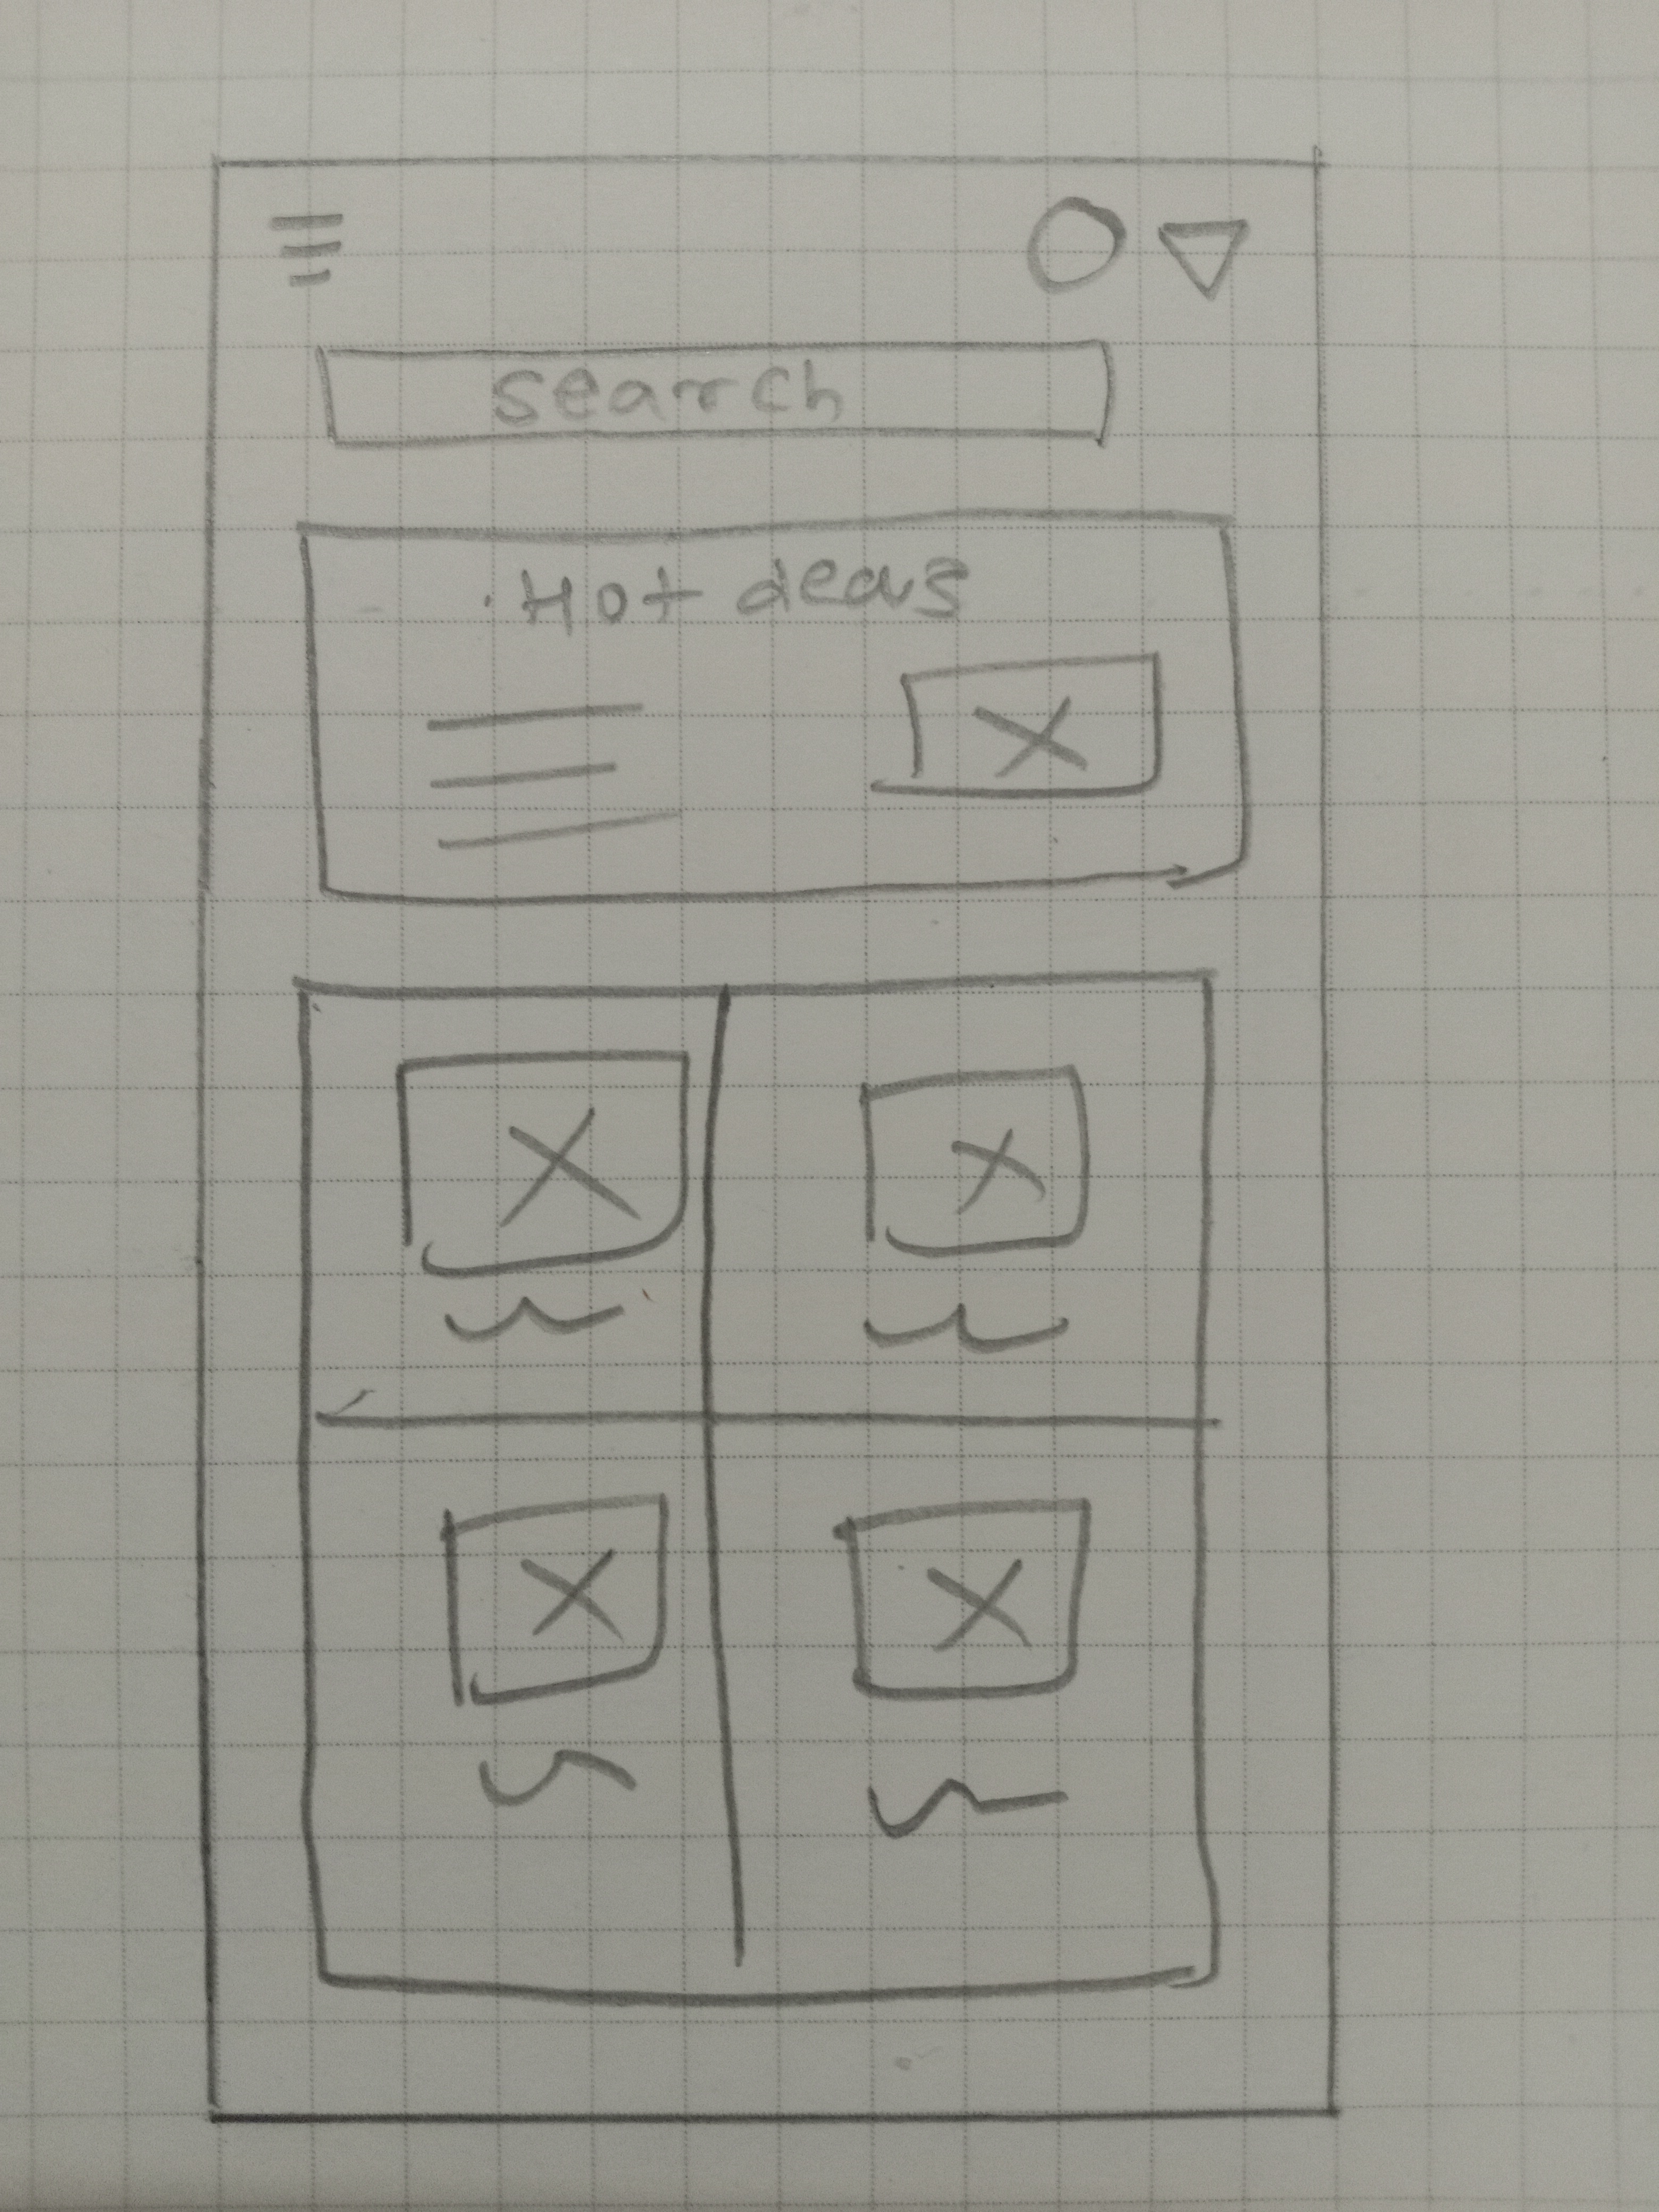 search
Hot deals